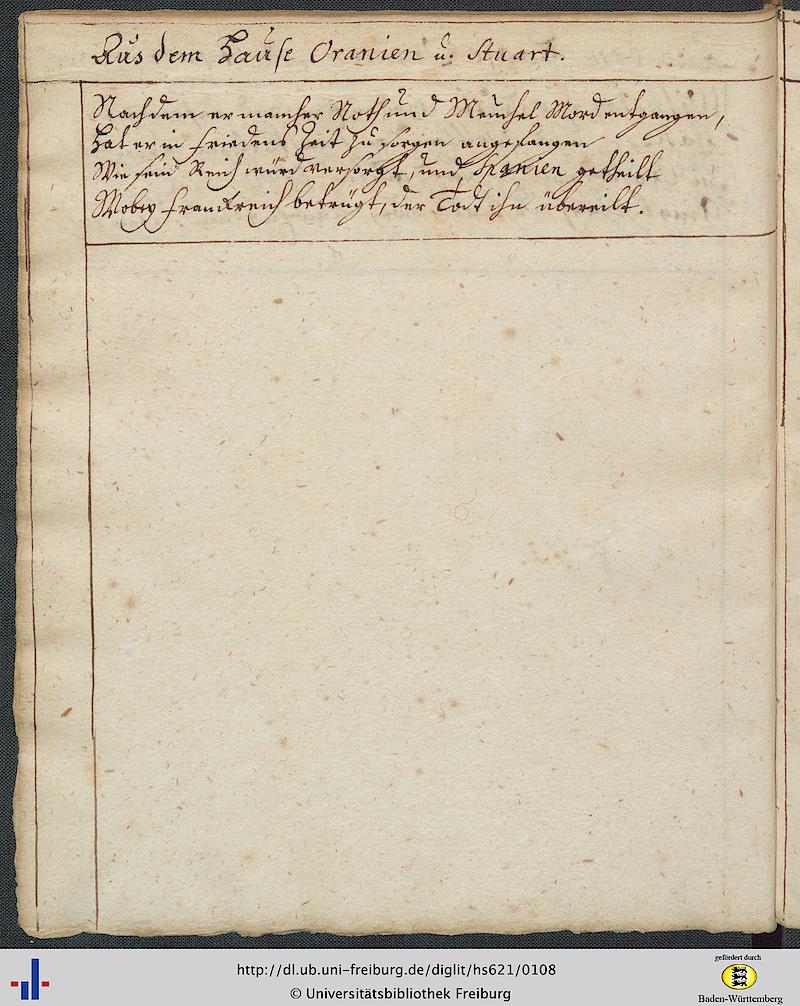 Aus dem Hause Oranien u. Stuart.
Nachdem er mancher Noth und Meuchel Mord entgangen,
Hat er in friedens Zeit zu sorgen angefangen
Wie sein Reich würd versorgt, und Spanien getheilt
Wobey franckreich betrügt, der Todt ihn übereilt.
http://dl.ub.uni-freiburg.de/diglit/hs621/0108
© Universitätsbibliothek Freiburg
gefördert durch
Baden-Württemberg